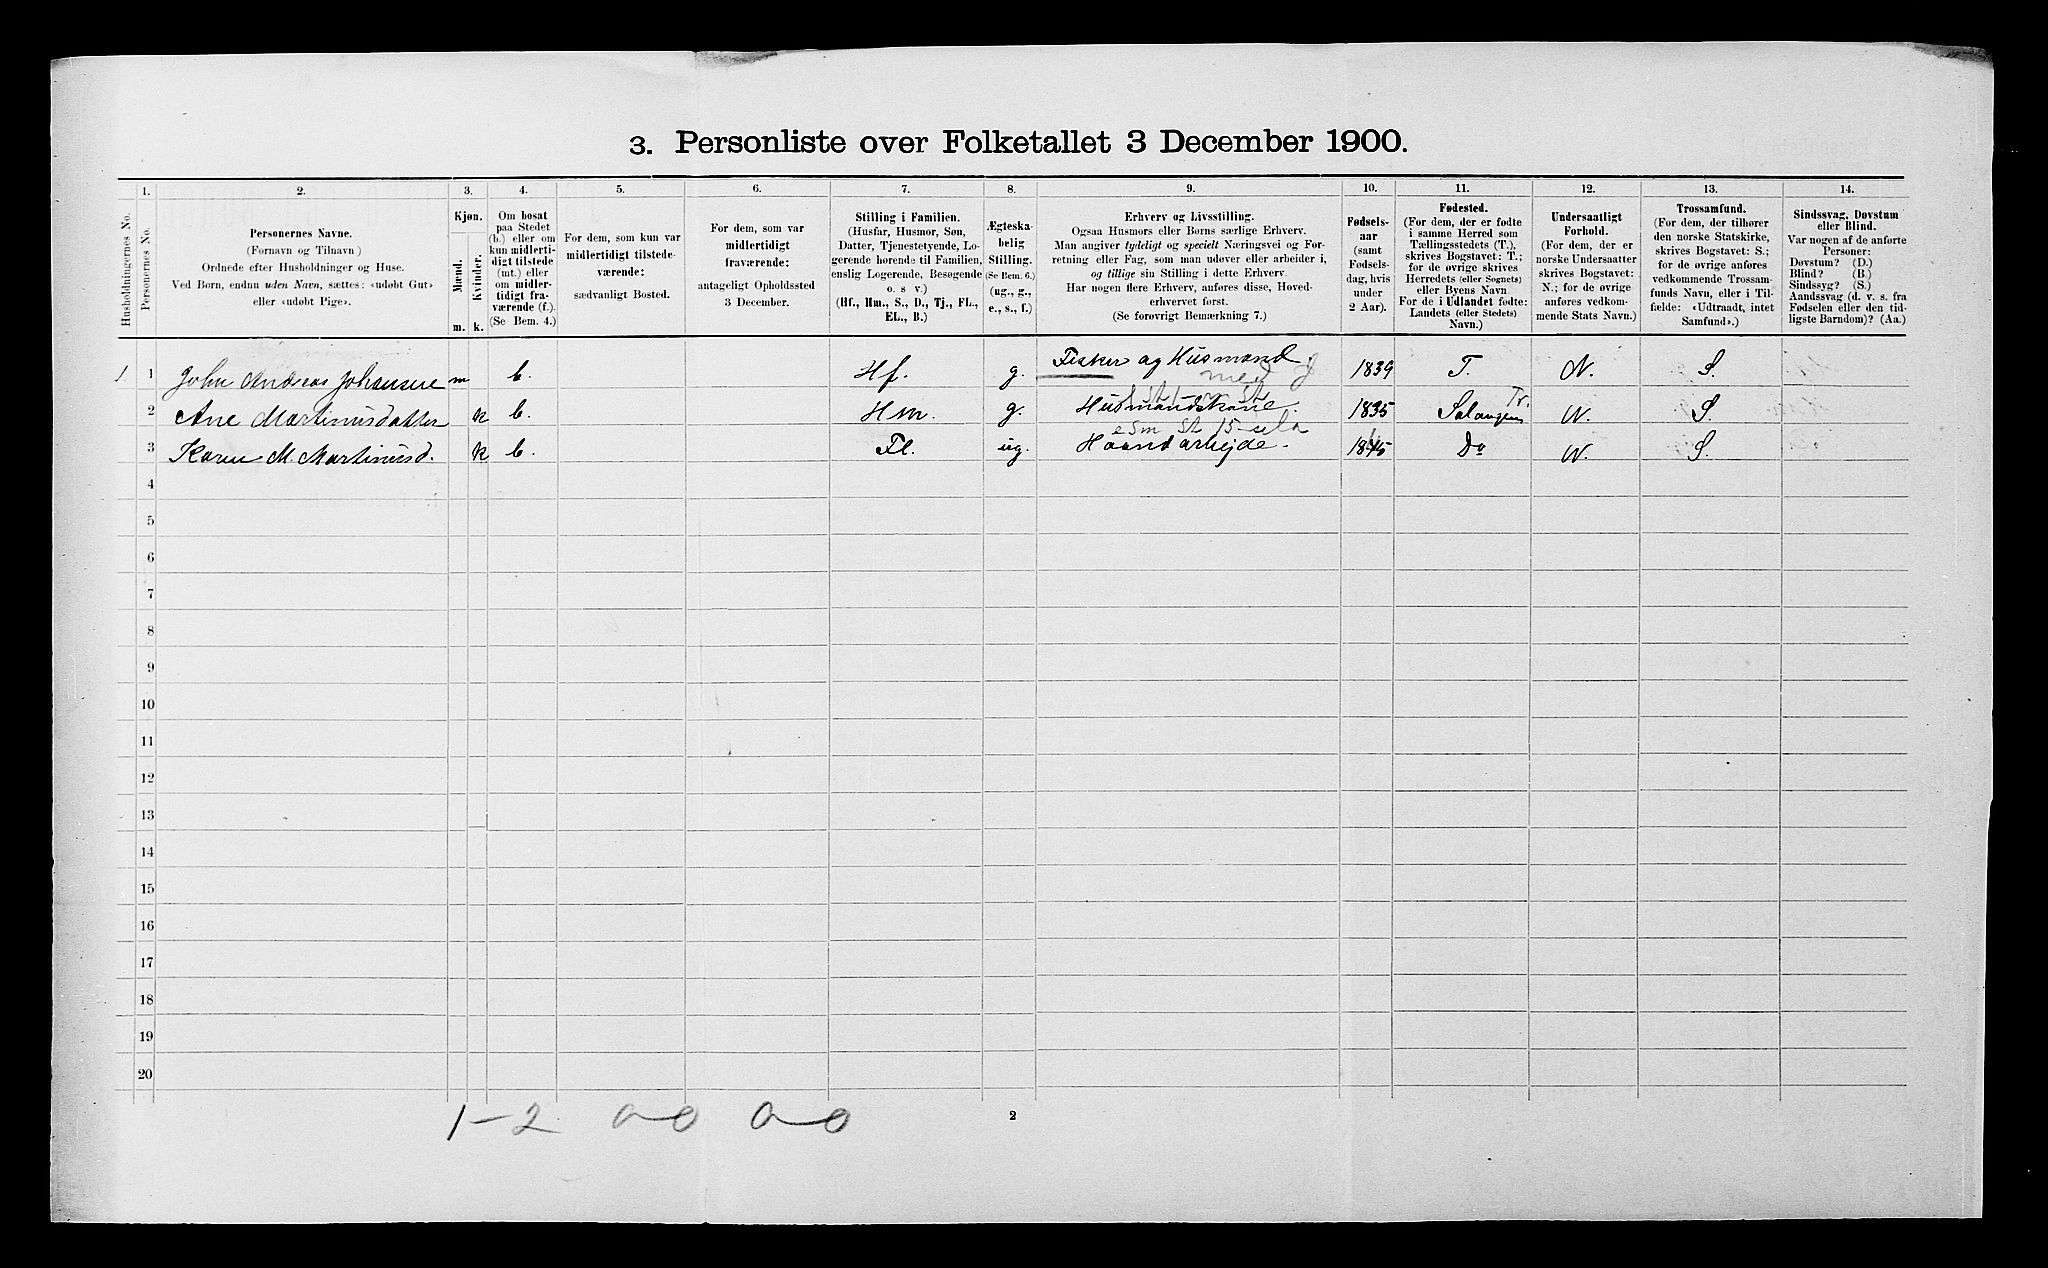 3. Personliste over Folketallet 3 December 1900.
Husholdningernes No.
1.
Personernes No.
2.
Personernes Navne.
(Fornavn og Tilnavn)
Ordnede efter Husholdninger og Huse.
Ved Børn, endnu uden Navn, sættes: «udøbt Gut»
eller «udøbt Pige».
3.
Kjøn.
Mænd.
Kvinder.
m. k.
4.
Om bosat
paa Stedet
(b.) eller om
kun midlerti-
digt tilstede
(mt.) eller
om midler-
tidigt fra-
værende (f.).
(Se Bem. 4.)
5.
For dem, som kun var
midlertidigt tilstede-
værende:
sædvanligt Bosted.
6.
For dem, som var
midlertidigt
fraværende:
antageligt Opholdssted
3 December.
7.
Stilling i Familien.
(Husfar, Husmor, Søn,
Datter, Tjenestetyende, Lo-
gerende hørende til Familien,
enslig Logerende, Besøgende
o. s v.)
(Hf., Hm., S., D., Tj., FL.,
EL., B.)
8.
Ægteska-
belig
Stilling.
(Se Bem. 6.)
(ug., g.,
e., s., f.)
9.
Erhverv og Livsstilling.
Ogsaa Husmors eller Børns særlige Erhverv.
Man angiver tydeligt og specielt Næringsvei og For-
retning eller Fag, som man udøver eller arbeider i,
og tillige sin Stilling i dette Erhverv.
Har nogen flere Erhverv, anføres disse, Hoved-
erhvervet først.
(Se forøvrigt Bemærkning 7.)
10.
Fødsels-
aar
(samt
Fødsels-
dag, hvis
under
2 Aar).
11.
Fødested.
(For dem, der er fødte
i samme Herred som
Tællingsstedets (T.),
skrives Bogstavet: T.;
for de øvrige skrives
Herredets (eller Sognets)
eller Byens Navn
For de i Udlandet fødte:
Landets (eller Stedets)
Navn.)
12.
Undersaatligt
Forhold.
(For dem, der er
norske Undersaatter
skrives Bogstavet:
N.; for de øvrige
anføres vedkom-
mende Stats Navn.)
13.
Trossamfund.
(For dem, der tilhører
den norske Statskirke,
skrives Bogstavet: S.;
for de øvrige anføres
vedkommende Trossam-
funds Navn, eller i Til-
fælde: «Udtraadt, intet
Samfund».)
14.
Sindssvag, Døvstum
eller Blind.
Var nogen af de anførte
Personer:
Døvstum? (D.)
Blind? (B.)
Sindssyg? (S.)
Aandssvag (d. v. s. fra
Fødselen eller den tid-
ligste Barndom)? (Aa.)
1 1 John Andreas Johansen m b. Hf. g. Fisker og Husmand med J 1839 T. N. S.
2 Ane Martinusdatter k b. Hm. g. Husmandskone. 1835 Salangen Tr. N. S.
3 Karen M. Martinusd. k b. Fl. ug. Haandarbejde. 1845 Do N. S.
4
5
6
7
8
9
10
11
12
13
14
15
16
17
18
19
20
1-2 0-0 0-0
2